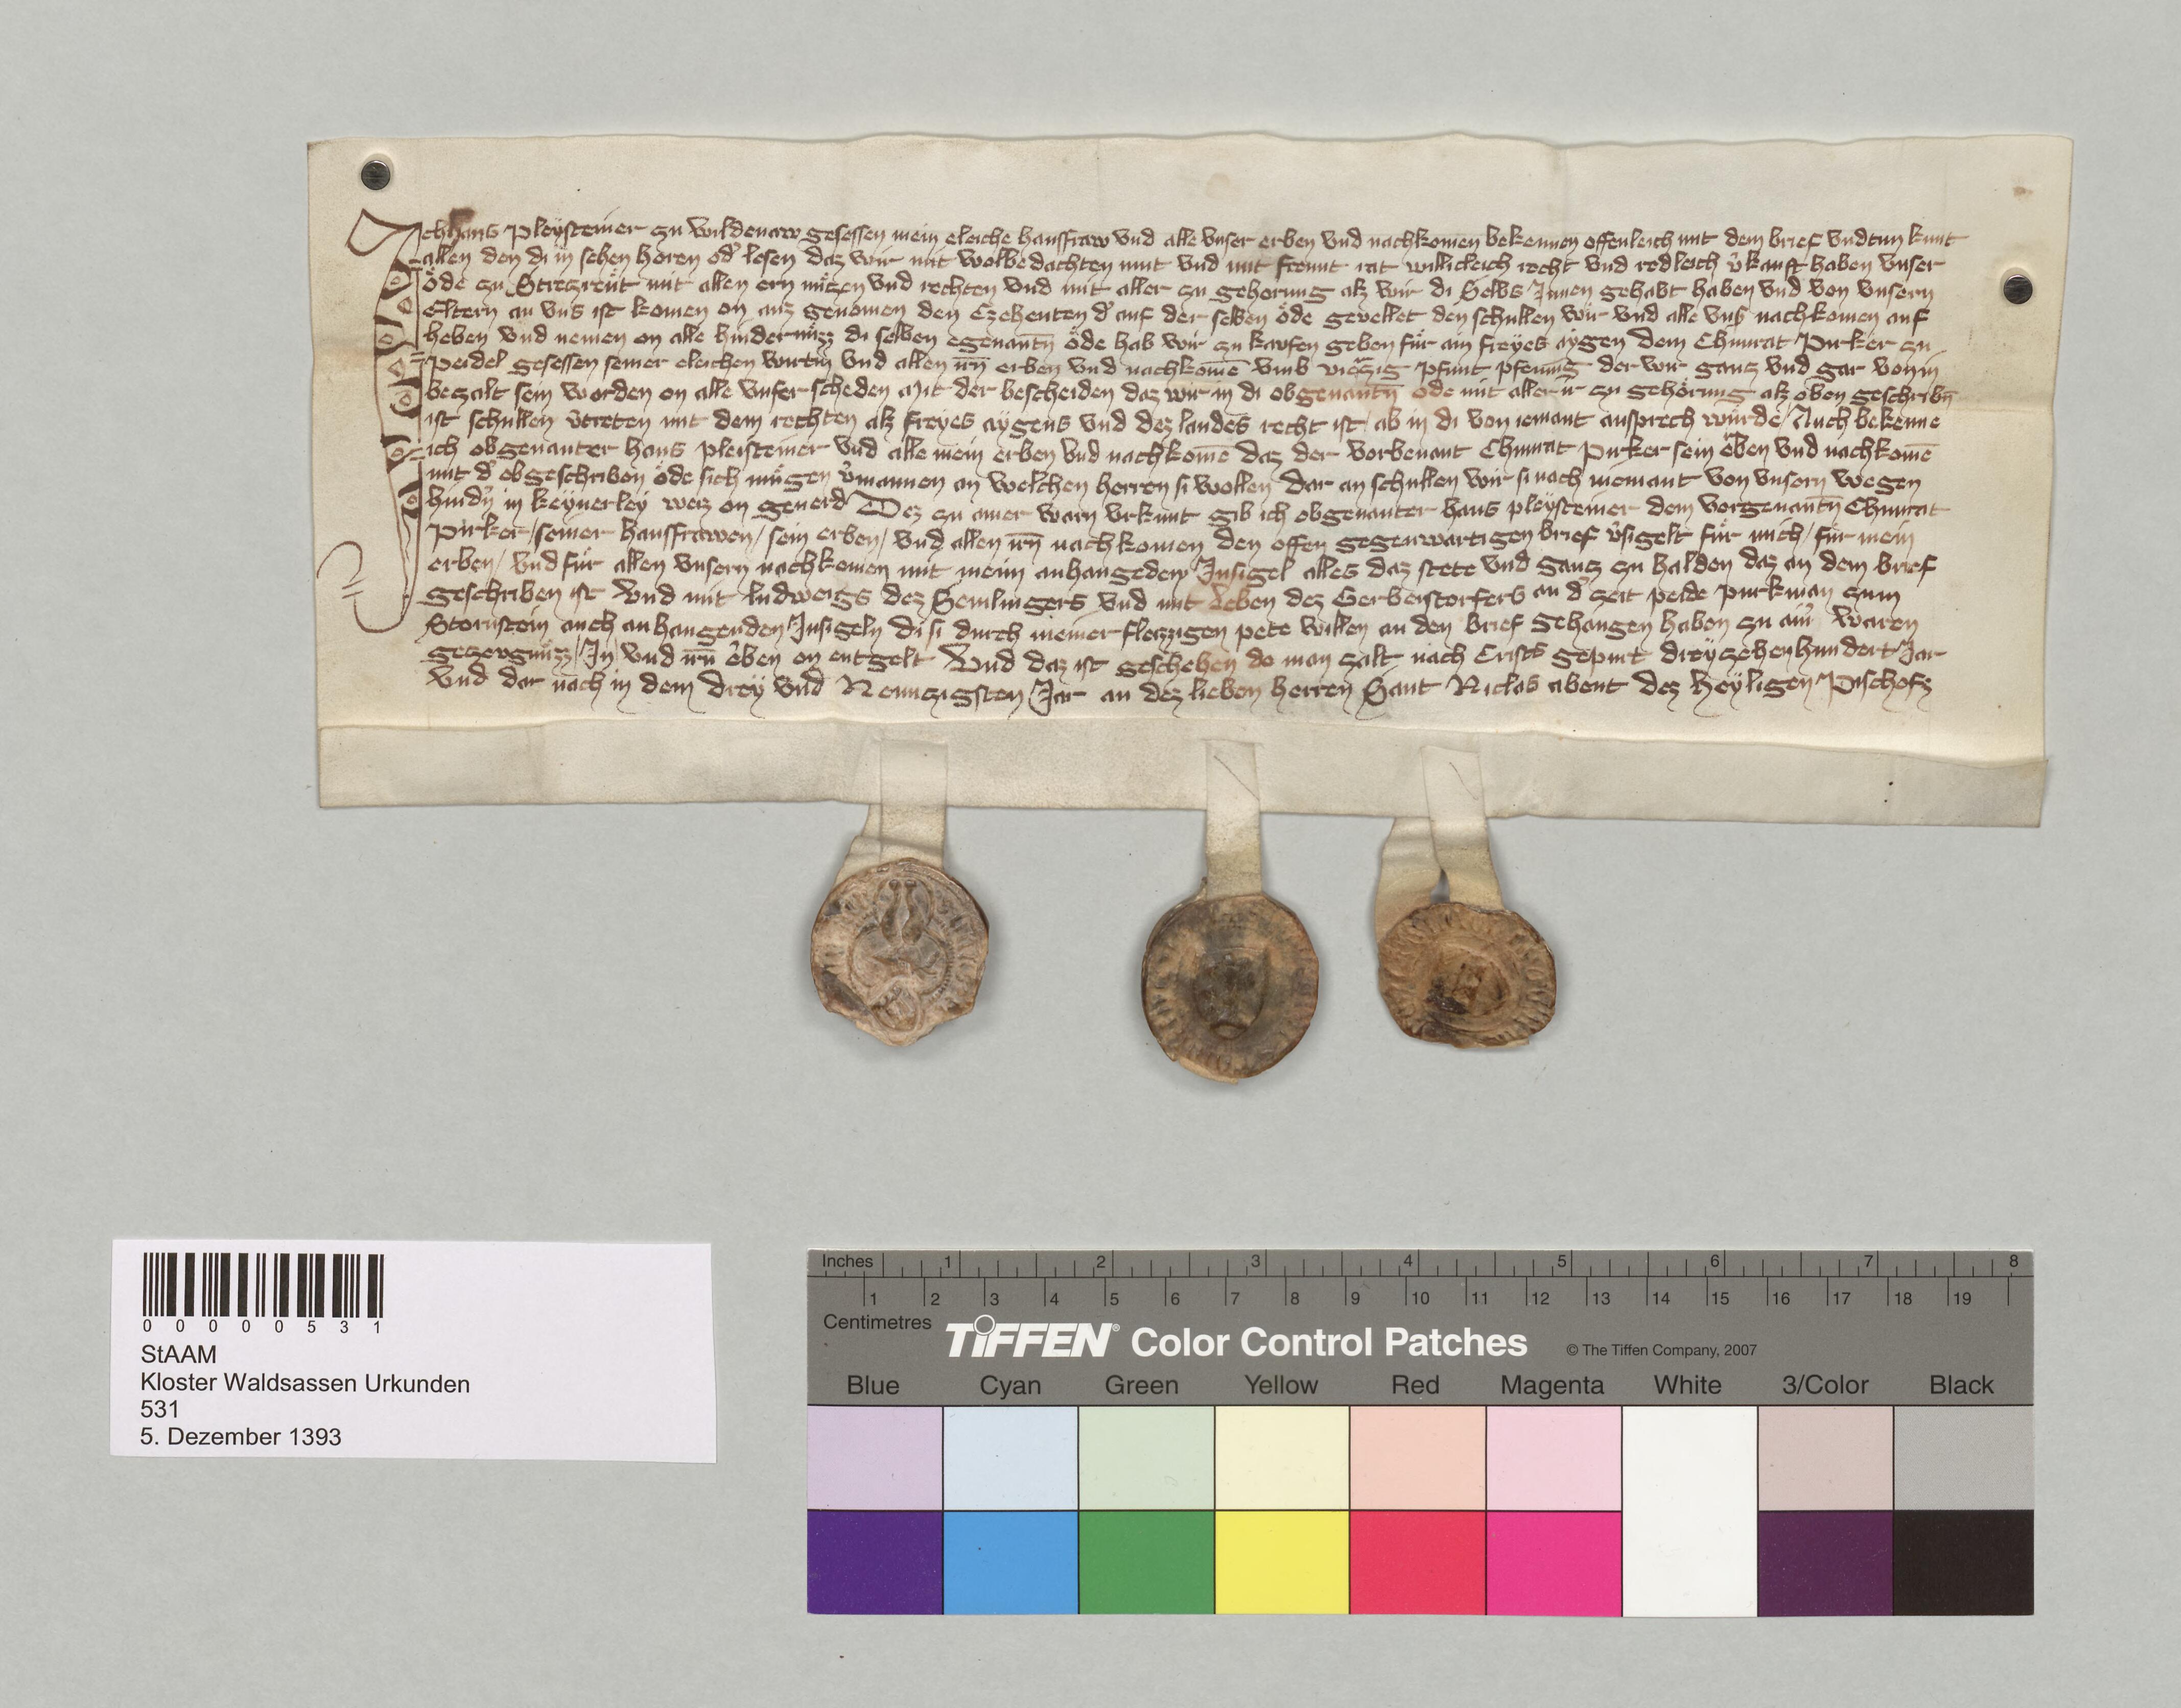 Ich hans Pleÿsteiner zu wildenaw gesessen mein eleiche hausfraw vnd alle vnser erben vnd nachkomen bekennen offenleich mit dem brief vnd tun kunt
allen den di in sehen horen od' lesen daz wir mit wolbedachten mut vnd mit freunt rat willicleich recht vnd redleich v'kauft haben vnser
öde zu Strezreüt mit allen ern nüczen vnd rechten vnd mit aller zu gehorung alz wir di Selbs Innen gehabt haben vnd von vnsern
Eltern an vns ist komen on auz genomen den Czehenten d' auf der selben öde geuellet den schullen wir vnd alle vns' nachkomen auf
heben vnd nemen on alle hindernüzz di selben egenantn̄ öde hab wir zu kaufen geben für ain freÿes aÿgen dem Chunrat Pirker zu
Peidel gesessen seiner eleichen wirtin vnd allen irn̄ erben vnd nachkomē vmb vierczig pfunt pfenning der wir gancz vnd gar von in
beczalt sein worden on alle vnser scheden Mit der bescheiden daz wir in di obgenantn̄ öde mit aller ir zu gehörung alz oben geschribn̄
ist schullen v'treten mit dem rechten alz freÿes aÿgens vnd dez landes recht ist / ab in di von iemant ansprech würde / Auch bekenne
ich obgenanter hans pleisteiner vnd alle mein erben vnd nachkomē daz der vorbenant Chunrat Pirker sein erben vnd nachkomē
mit d' obgeschriben öde sich mügen v'mannen an welchen herren si wollen Dar an schullen wir si nach niemant von vnsern wegen
hind'n in keÿnerleÿ weiz on geuerd Dez zu ainer warn vrkunt gib ich obgenanter hans pleÿsteiner dem vorgenantn̄ Chunrat
Pirker / seiner hausfrawen / sein erben / vnd allen irn̄ nachkomen den offen gegenwartigen brief v'sigelt für mich / für mein
erben / vnd für allen vnsern nachkomen mit meim anhangedem Insigel alles daz stete vnd gancz zu halden daz an dem brief
geschriben ist Vnd mit ludweigs dez Semlingers vnd mit leben dez Gerbeistorfers an d' zeit pede purkman zum
Stornstein auch anhangenden Insigeln di si durch meiner fleizzigen pete willen an den brief gehangen haben zu ain' waren
gezeugnüzz / In vnd irn̄ erben on entgelt Vnd daz ist geschehen do man zalt nach Crists gepurt dreÿzehenhundert Jar
vnd dar nach in dem dreÿ vnd Neunczigsten Jar an dez lieben herren Sant Niclas abent dez heÿligen Pischofz
0 0 0 0 0 5 3 1
StAAM
Kloster Waldsassen Urkunden
531
5. Dezember 1393
Inches 1 2 3 4 5 6 7 8
1 2 3 4 5 6 7 8 9 10 11 12 13 14 15 16 17 18 19
Centimetres
TIFFEN® Color Control Patches © The Tiffen Company, 2007
Blue Cyan Green Yellow Red Magenta White 3/Color Black